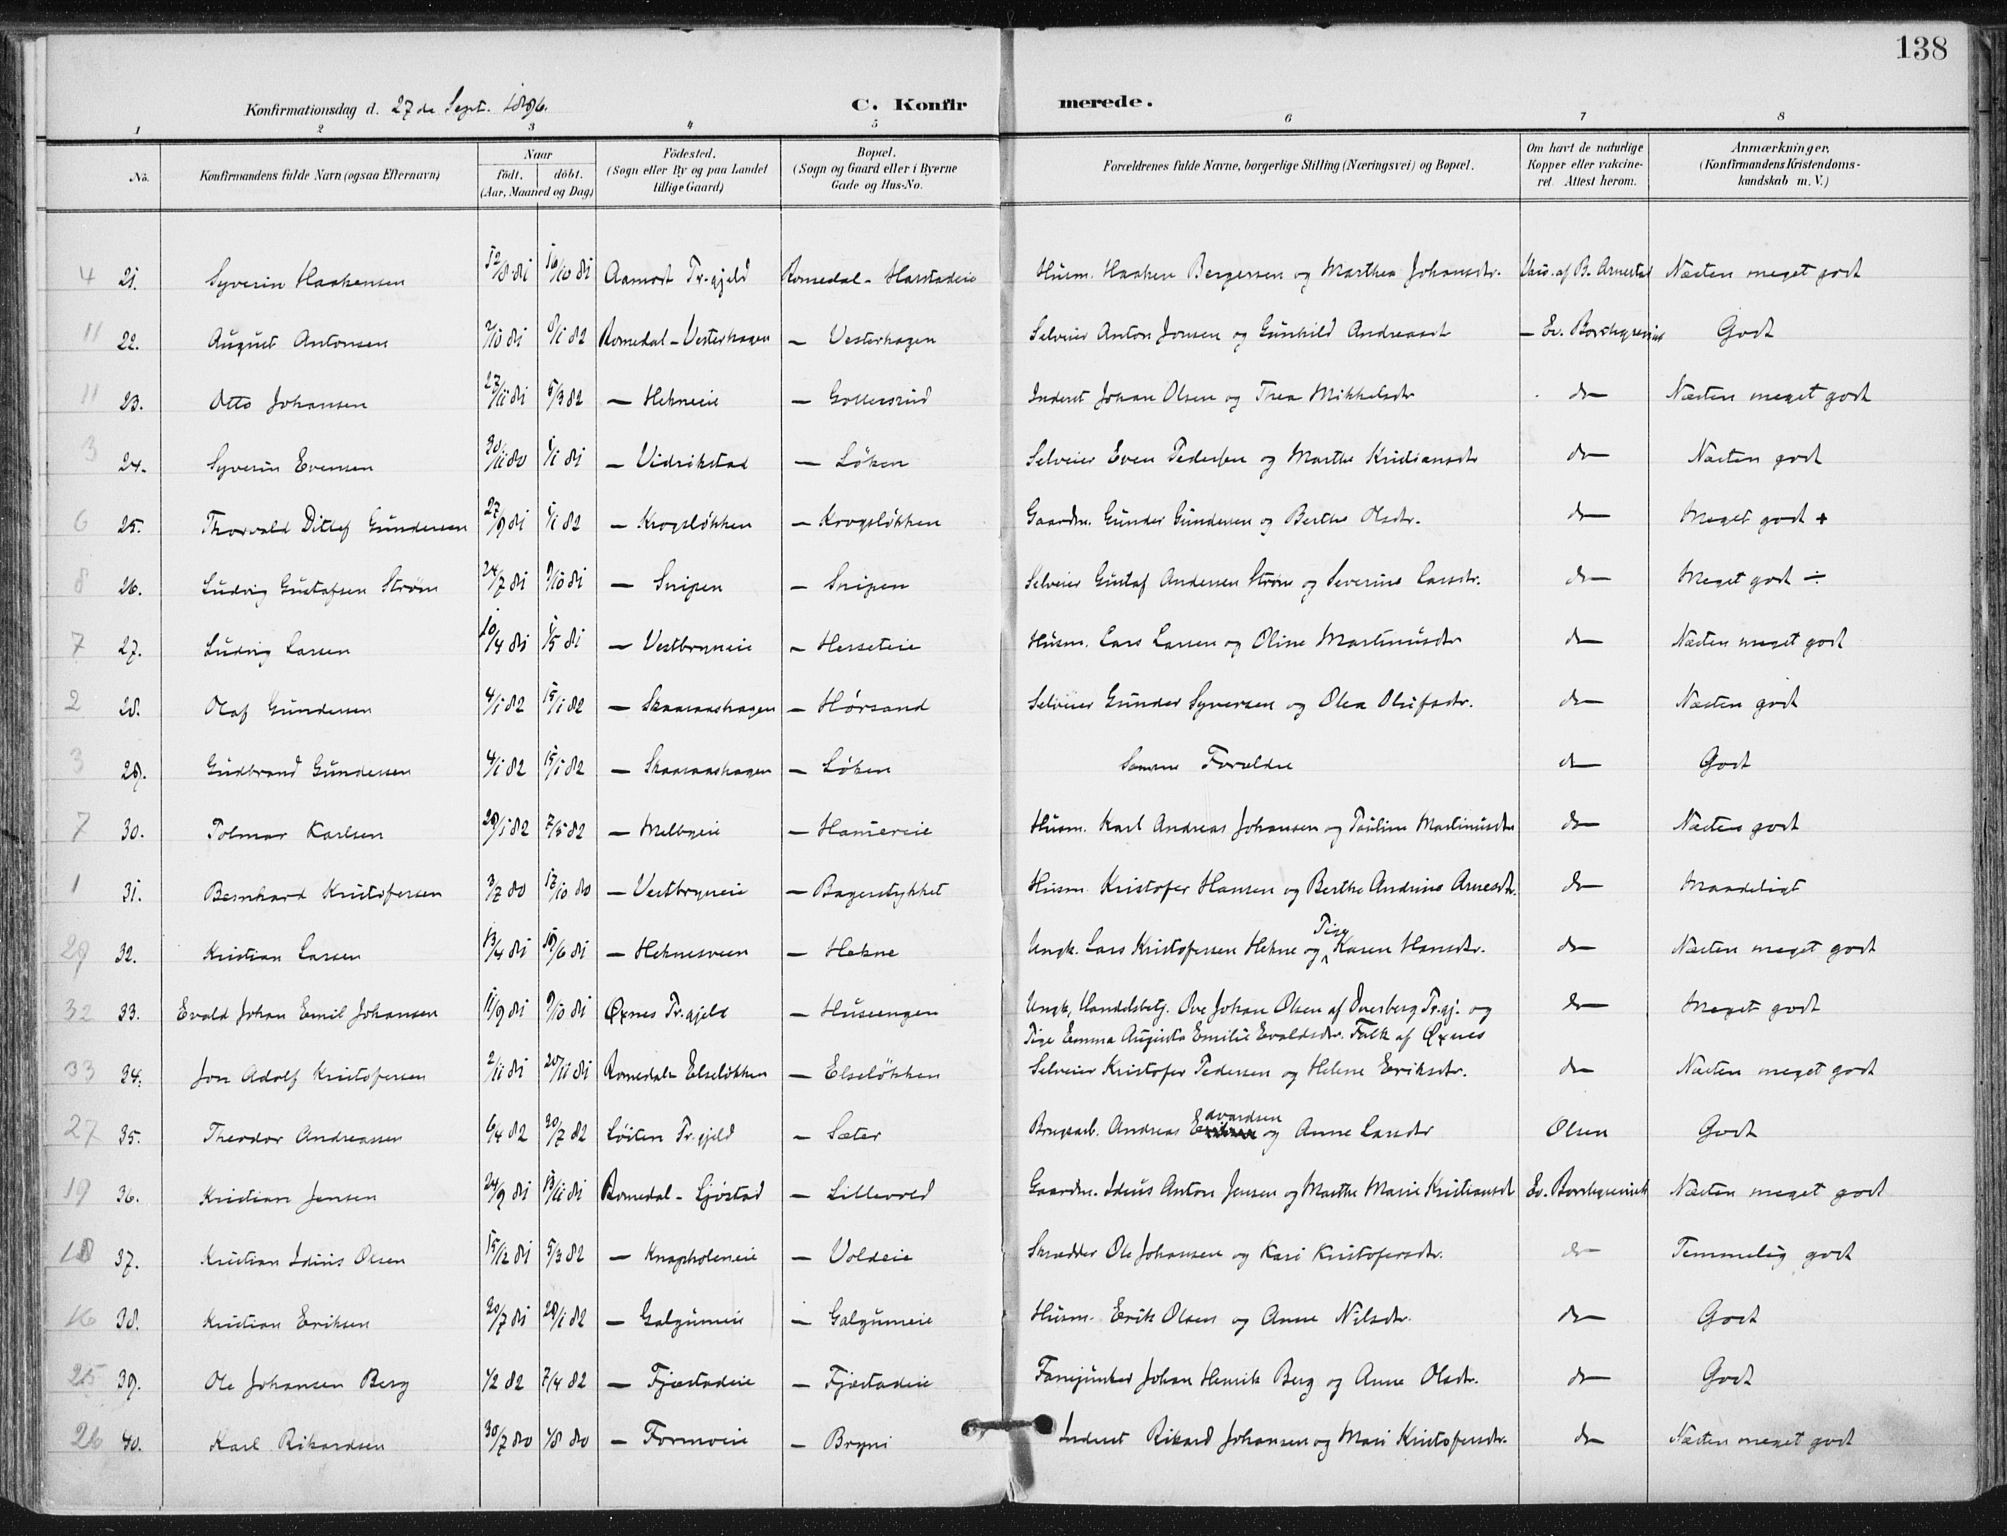 138
Konfirmationsdag d. 27de Sept. 1896. C. Konfirmerede.
1 2 3 4 5 6 7 8
No. Konfirmandens fulde Navn (ogsaa Efternavn) Naar födt. döbt. (Aar, Maaned og Dag) Födested. (Sogn eller By og paa Landet tillige Gaard) Bopæl. (Sogn og Gaard eller i Byerne Gade og Hus-No. Forældrenes fulde Navne, borgerlige Stilling (Næringsvei) og Bopæl. Om havt de naturlige Kopper eller vakcineret. Attest herom. Anmærkninger, (Konfirmandens Kristendomskundskab m. V.)
4 21. Syverin Haakensen 12/8 81 16/10 81 Aamodt Pr.gjeld Romedal - Harstadeie Husm. Haaken Bergersen og Marthea Johansdr. af B. Arnestad Næsten meget godt
11 22. August Antonsen 2/10 81 8/1 82 Romedal - Vesterhagen — Vesterhagen Selveier Anton Jonsen og Gunhild Andreasdt — Ev. Borchgrevink Godt
11 23. Otto Johansen 27/11 81 5/3 82 — Hekneie — Gottersrud Inderst Johan Olsen og Thea Mikkelsdr do Næsten meget godt
3 24. Syverin Evensen 30/11 80 1/1 81 — Vidrikstad — Löken Selveier Even Pedersen og Marthe Kristiansdr do Næsten godt
6 25. Thorvald Ditlef Gundersen 27/9 81 1/1 82 — Krogsløkken — Krogsløkken Gaardm. Gunder Gundersen og Berthe Olsdr. do Meget godt +
8 26. Ludvig Gustafsen Strøm 24/7 81 9/10 81 — Snipen — Snipen Selveier Gustaf Andersen Strøm og Severine Larsdr. do Meget godt ÷
7 27. Ludvig Larsen 10/4 81 1/5 81 — Vestbryneie — Hesseteie Husm. Lars Larsen og Oline Martinusdr do Næsten meget godt
2 28. Olaf Gundersen 4/1 82 15/1 82 — Skaaraashagen — Hørsand Selveier Gunder Syversen og Olea Olufsdr. do Næsten godt
3 29. Gudbrand Gundersen 4/1 82 15/1 82 — Skaaraashagen — Löken Samme Forældre do Godt
7 30. Polmar Karlsen 29/1 82 7/5 82 — Melbyeie — Hamereie Husm. Karl Andreas Johansen og Pauline Martinusdr do Næsten godt
1 31. Bernhard Kristofersen 3/7 80 17/10 80 — Vestbryneie — Bagerstykket Husm. Kristofer Hansen og Berthe Andrine Arnesdr. do Maadeligt
29 32. Kristian Larsen 13/4 81 19/6 81 — Heknesveen — Hekne Ungk. Lars Kristofersen Hekne og Pige Karen Hansdr. do Næsten meget godt
32 33. Evald Johan Emil Johansen 11/9 81 9/10 81 Øxnes Pr.gjeld — Husengen Ungk, Handelsbetj. Ove Johan Olsen af Dverberg Pr.gj. og do Meget godt
Pige Emma Augusta Emilie Evaldsdr. Falk af Øxnes
33 34. Jon Adolf Kristofersen 2/11 81 20/11 81 Romedal - Elseløkken — Elseløkken Selveier Kristofer Pedersen og Helene Eriksdr. do Næsten meget godt
27 35. Theodor Andreassen 6/4 82 20/7 82 Löiten Pr.gjeld — Sæter Brugsarb. Andreas Edvardsen og Anne Larsdr Olsen Godt
19 36. Kristian Jensen 24/9 81 13/11 81 Romedal - Ljøstad — Lillevold Gaardm. Idius Anton Jensen og Marthe Marie Kristiansdt Ev. Borchgrevink Næsten meget godt
18 37. Kristian Idius Olsen 15/12 81 5/3 82 — Knapholeneie — Voldeie Skrædder Ole Johansen og Kari Kristofersdr. do Temmelig godt
16 38. Kristian Eriksen 30/7 81 29/1 82 — Galgumeie — Galgumeie Husm. Erik Olsen og Anne Nilsdr. do Godt
25 39. Ole Johansen Berg 1/2 82 7/4 82 — Fjæstadeie — Fjæstadeie Fanejunker Johan Henrik Berg og Anne Olsdr. do Godt
26 40. Karl Rikardsen 30/7 80 1/8 80 — Formoeie — Bryni Inderst Rikard Johansen og Mari Kristofersdr. do Næsten meget godt